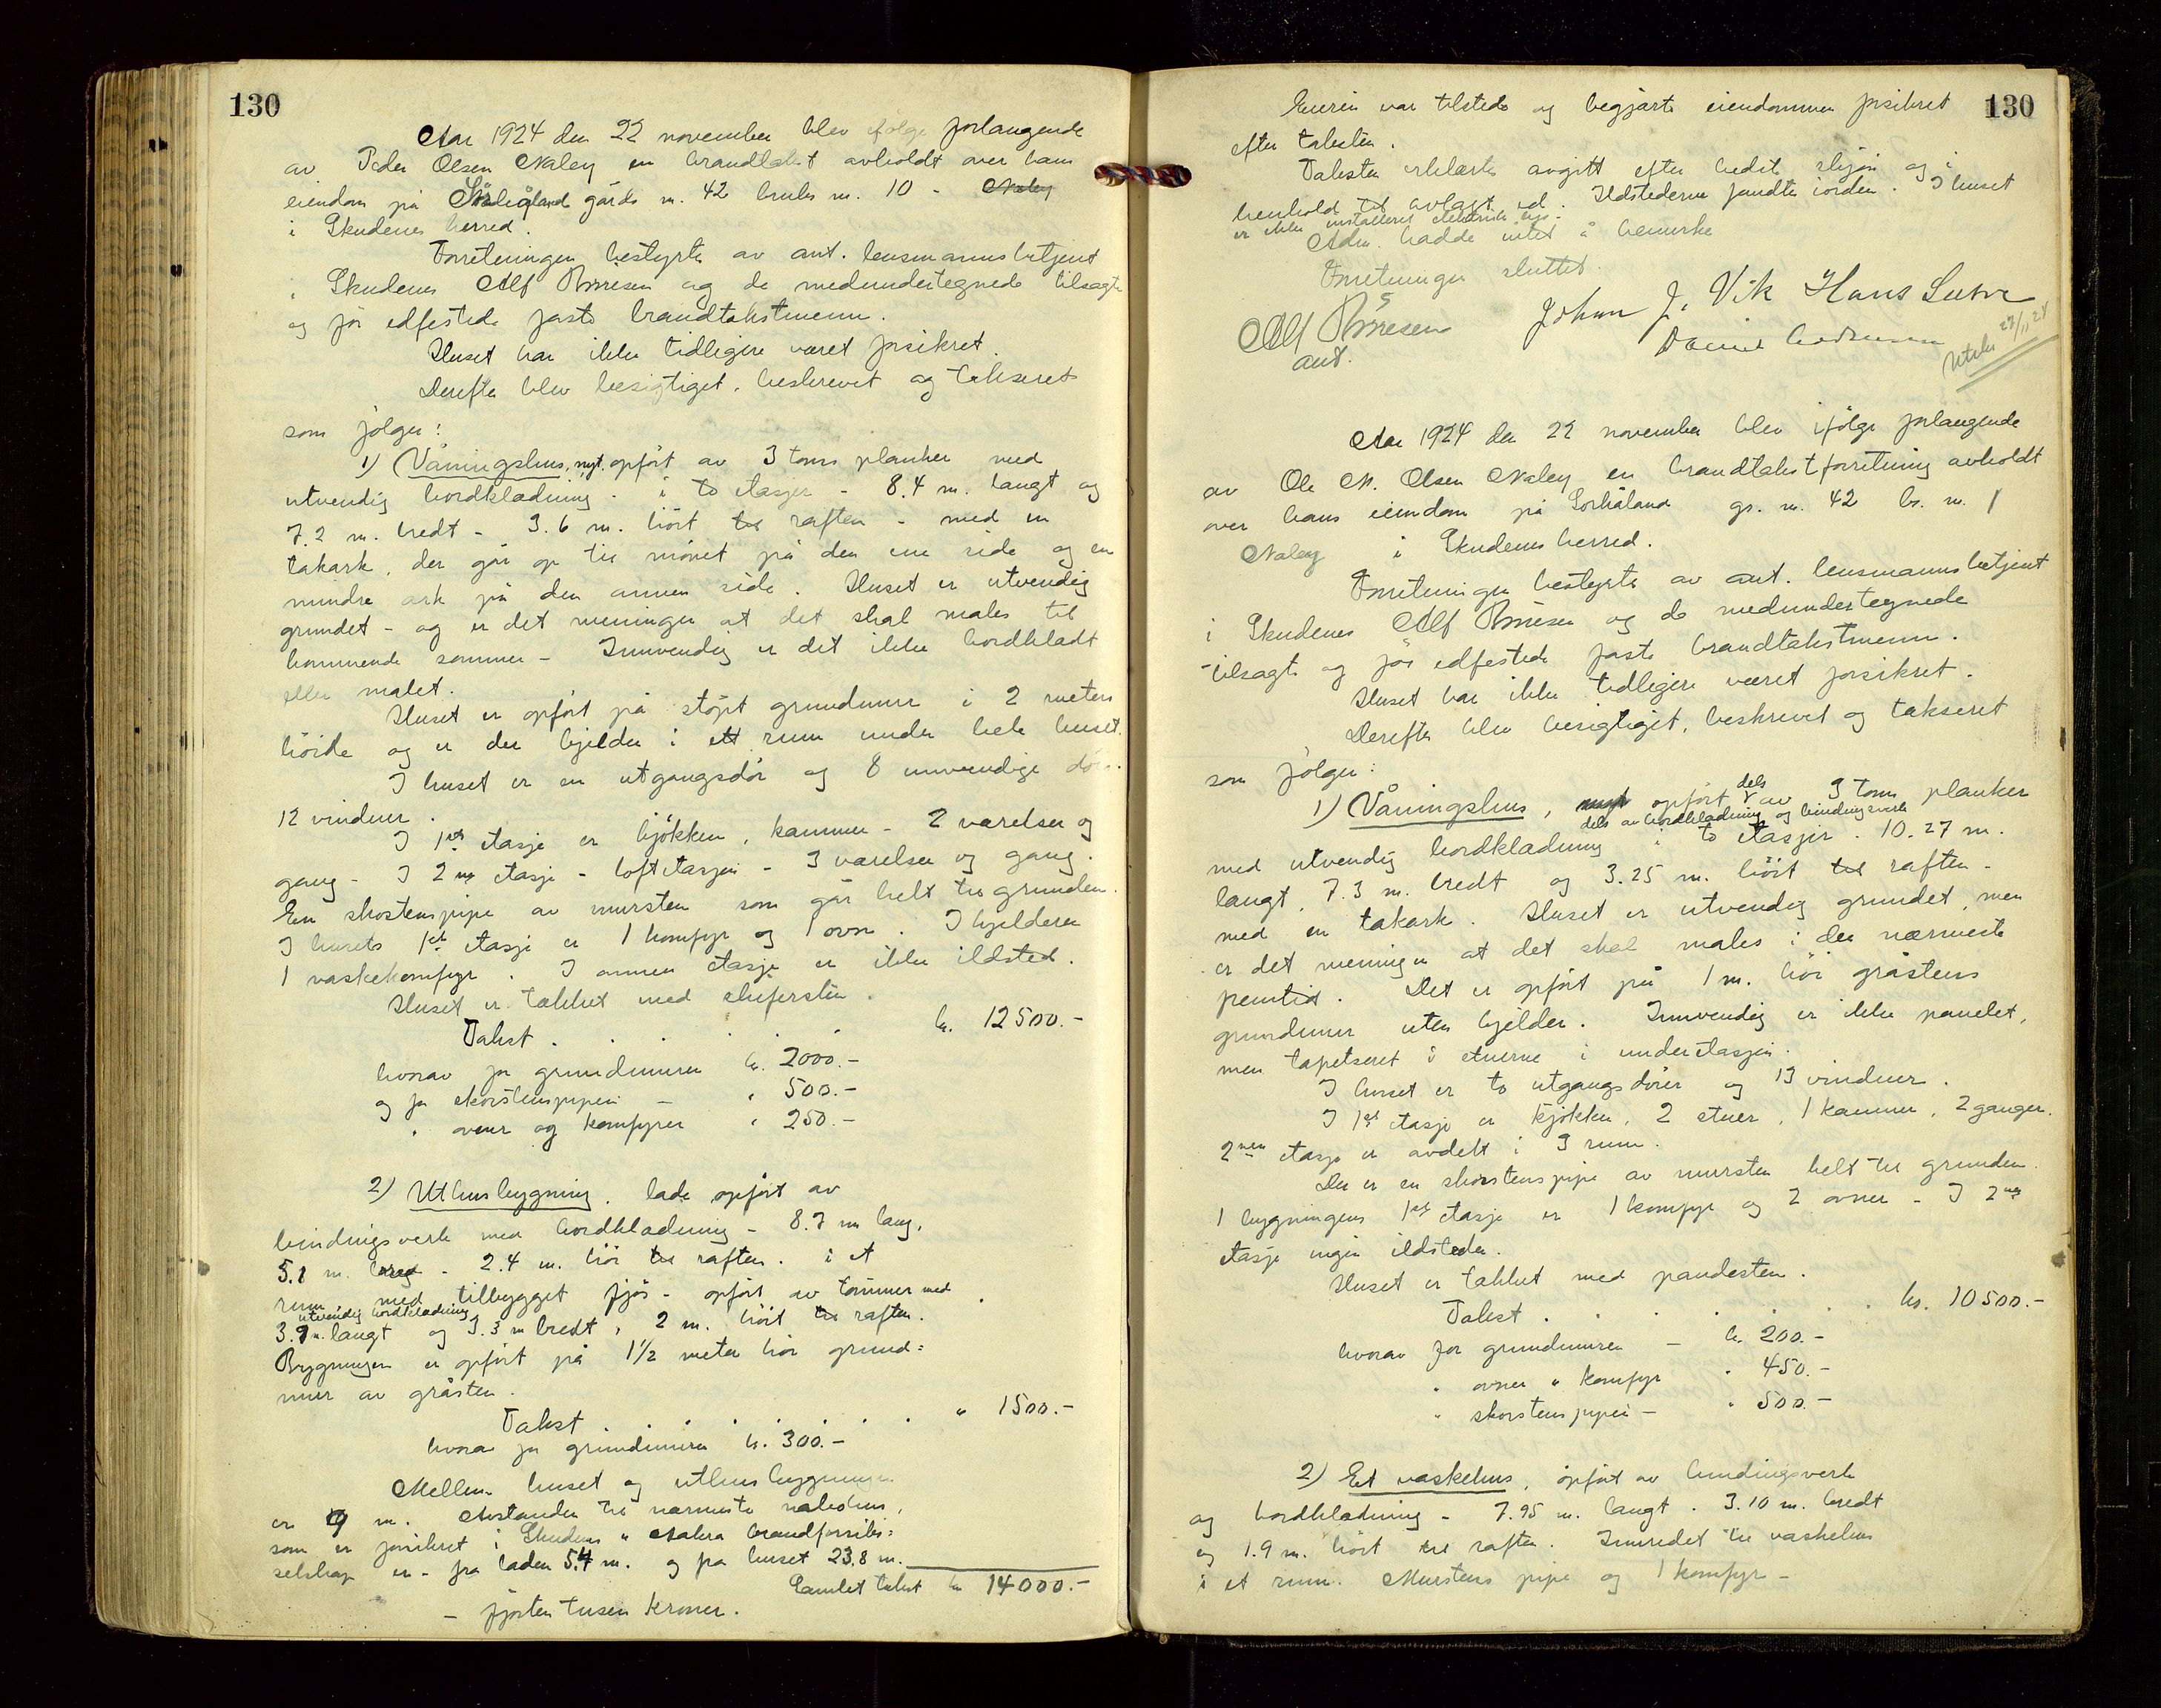 130
Aar 1924 den 22 november blev ifölge forlangende
av Peder Olsen Naley en brandtakst avholdt over hans
eiendom på gårds nr. 42 bruks nr. 10 - Naley
i Skudenes herred.
Forretningen bestyrtes av ant. lensmannsbetjent
i Skudenes Alf Thoresen og de medundertegnede tilsagte
og för edfestede faste brandtakstmenn.
Huset har ikke tidligere været forsikret.
Derefter blev besigtiget, beskrevet og takseret
som fölger:
1) Våningshus, nyt, opfört av 3 toms planker med
utvendig bordklædning - i to etasjer - 8.4 m. langt og
7.2 m. bredt - 3.6 m. höit til raften - med en
takark, der går op til mönet på den ene side og en
mindre ark på den annen side. Huset er utvendig
grundet - og er det meningen at det skal males til
kommende sommer - Innvendig er det ikke bordklædt
eller malet.
Huset er opfört på stöpt grundmur i 2 meters
höide og er der kjelder i ett rum under hele huset.
I huset er en utgangsdör og 8 innvendige
12 vinduer.
I 1ste etasje er kjökken, kammer - 2 værelser og
gang - I 2nen etasje - loftetasjen - 3 værelser og gang.
En skorstenspipe av mursten som går helt til grunden.
I husets 1ste etasje er 1 komfyr og 1 ovn. I kjelderen
1 vaskekomfyr. I annen etasje er ikke ildsted.
Huset er tækket med skifersten.
Takst . . . . . kr. 12500.-
hvorav for grundmuren kr. 2000.-
og for skorstenspipen - " 500.-
" ovner og komfyrer " 250.-
2) Uthusbygning, lade opfört av
bindingsverk med bordklædning - 8.7 m lang,
5.1 m. bred - 2.4 m. höi til raften. i et
rum med tilbygget fjös - opfört av tömmer med
utvendig bordklædning
3.9 m. langt og 3.3 m bredt, 2 m. höit til raften.
Bygningen er opfört på 1½ meter höi grund=
mur av gråsten.
Takst . . . . . . . " 1500.-
hvorav for grundmuren kr. 300.-
Mellem huset og uthusbygningen
er 9 m. Avstanden til nærmeste nabohus,
som er forsikret i Skudenes " Aakra brandforsikr=
selskap er - fra laden 5.4 m. og fra huset 23.8 m.
Samlet takst kr 14000.-
- fjorten tusen kroner.
130
Eieren var tilstede og begjærte eiendommen forsikret
efter taksten.
Taksten erklæres avgitt efter bedste skjön og i
henhold til avlagt ed. Ildstederne fandtes iorden. I huset
er ikke installeret elektrisk lys.
Adm. hadde intet å bemerke
Forretningen sluttet.
Alf Thoresen Johan J. Vik Hans
ant.
Aar 1924 den 22 november blev ifölge forlangende
av Ole M. Olsen Naley en brandtakstforretning avholdt
over hans eiendom på Sörhåland gr. nr. 42 br. nr. 1
Naley i Skudenes herred.
Forretningen bestyrtes av ant. lensmannsbetjent
i Skudenes Alf Thoresen og de medundertegnede
tilsagte og för edfestede faste brandtakstmenn.
Huset har ikke tidligere været forsikret.
Derefter blev besigtiget, beskrevet og takseret
som fölger:
1) Våningshus, opfört dels av 3 toms planker
dels av bordklædning og bindingsverk
med utvendig bordklædning i to etasjer. 10.27 m.
langt, 7.3 m. bredt og 3.25 m. höit til raften -
med en takark. Huset er utvendig grundet, men
er det meningen at det skal males i den nærmeste
fremtid. Det er opfört på 1 m. höi gråstens
grundmur uten kjelder. Innvendig er ikke panelet,
men tapetseret i stuerne i underetasjen.
I huset er to utgangsdörer og 13 vinduer.
I 1ste etasje er kjökken, 2 stuer, 1 kammer, 2 ganger.
2nen etasje er avdelt i 3 rum.
Der er en skorstenspipe av mursten helt til grunden.
I bygningens 1ste etasje er 1 komfyr og 2 ovner - I 2nen
etasje ingen ildsteder.
Huset er tækket med pandesten.
Takst . . . . . . kr. 10500.-
hvorav for grundmuren - kr. 200.-
" ovner " komfyr " 450.-
" skorstenspipen - " 500.-
2) Et vaskehus, opfört av bindingsverk
og bordklædning - 7.95 m. langt. 3.10 m. bredt
og 1.9 m. höit til raften. Innredet til vaskehus
i et rum. Murstens pipe og 1 komfyr -